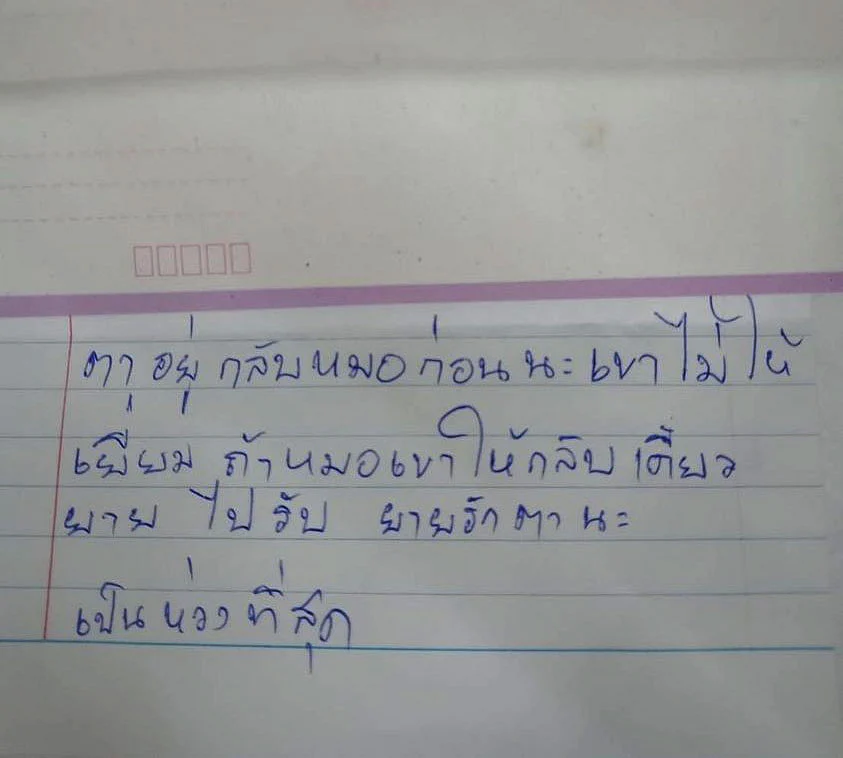 ตาอยู่กลับหมอก่อนนะเขาไม่ให้
เยี่ยม ถ้าหมอเขาให้กลับเดี๋ยว
ยาย ไปรับ ยายรักตานะ
เป็นห่วงที่สุด